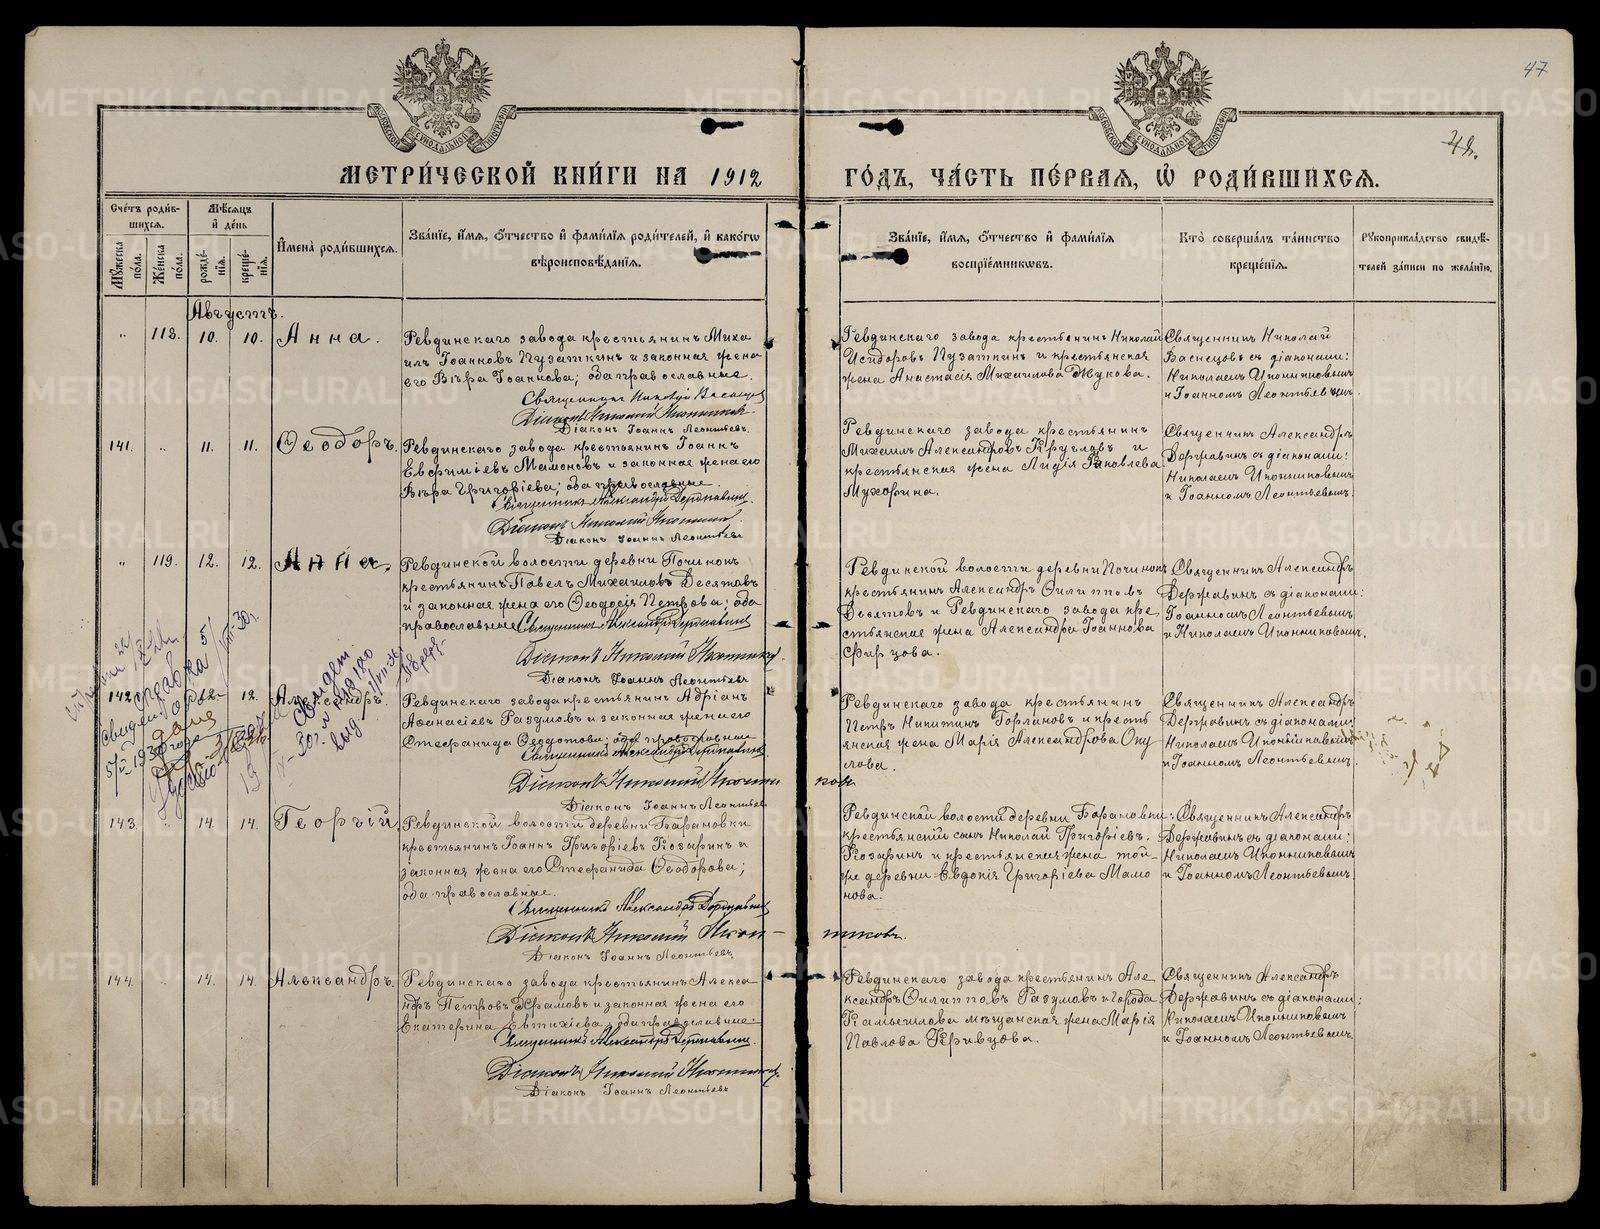 47
48.
МОСКОВСКОЙ СѴНОДАЛЬНОЙ ТИПОГРАФІИ
МОСКОВСКОЙ СѴНОДАЛЬНОЙ ТИПОГРАФІИ
МЕТРИ́ЧЕСКОЙ КНИ́ГИ НА 1912 ГО́ДЪ, ЧА́СТЬ ПЕ́РВАЯ, Ѡ РОДИ́ВШИХСЯ.
Сче́тъ роди́в-
шихся.
Мꙋ́жеска по́ла.
Же́нска по́ла.
Мѣ́сяцъ
и҆ де́нь
рожде́-
нїѧ.
креще́-
нїѧ.
И҆мена̀ роди́вшихся.
Зва́нїе, и҆́мя, ѻ҆́тчество и҆ фами́лїя роди́телей, и҆ како́гѡ
вѣроисповѣ́данїя.
Зва́нїе, и҆́мя, ѻ҆́тчество и҆ фами́лїя
воспрїе́мникѡвъ.
Кто̀ соверша́лъ та́инство
креще́нїя.
Рꙋкоприкла́дство свидѣ́-
телей за́писи по жела́нїю.
Августъ.
" 118. 10. 10. Анна.
Ревдинскаго завода крестьянинъ Миха
илъ Іоанновъ Пузаткинъ и законная жена
его Вѣра Іоаннова; оба православные.
Священникъ Николай Васнецов
Діаконъ Николай Иконников
Діаконъ Іоаннъ Леонтьевъ.
Ревдинскаго завода крестьянинъ Николай
Исидоровъ Пузаткинъ и крестьянская
жена Анастасія Михаилова Жукова.
Священникъ Николай
Васнецовъ съ діаконами:
Николаемъ Иконниковымъ
и Іоанномъ Леонтьевымъ.
141. " 11. 11. Ѳеодоръ.
Ревдинскаго завода крестьянинъ Іоаннъ
Евфиміевъ Мамоновъ и законная жена его
Вѣра Григоріева; оба православные.
Священникъ Александръ Державинъ
Діаконъ Николай Иконников
Діаконъ Іоаннъ Леонтьевъ
Ревдинскаго завода крестьянинъ
Михаилъ Александровъ Кругловъ и
крестьянская жена Лидія Яковлева
Мухорина.
Священникъ Александръ
Державинъ съ діаконами:
Николаемъ Иконниковымъ
и Іоанномъ Леонтьевымъ.
" 119. 12. 12. Анна.
Ревдинской волости деревни Починокъ
крестьянинъ Павелъ Михаиловъ Десятовъ
и законная жена его Ѳеодосія Петрова; оба
православные Священникъ Александръ Державинъ
Діаконъ Николай Иконников
Діаконъ Іоаннъ Леонтьевъ
Ревдинской волости деревни Починокъ
крестьянинъ Александръ Филипповъ
Десятовъ и Ревдинскаго завода кре
стьянская жена Александра Іоаннова
Фирцова.
Священникъ Александръ
Державинъ съ діаконами:
Іоанномъ Леонтьевымъ
и Николаемъ Иконниковымъ.
справка
Свидет.
выд
142. 12. 12. Александръ.
Ревдинскаго завода крестьянинъ Адріанъ
Аѳанасіевъ Разумовъ и законная жена его
Стефанида Ѳеодотова; оба православные
Священникъ Александръ Державинъ
Діаконъ Николай Иконни ковъ
Діаконъ Іоаннъ Леонтьев
Ревдинскаго завода крестьянинъ
Петръ Никитинъ Горлановъ и кресть
янская жена Марія Александрова Оку
лова.
Священникъ Александръ
Державинъ съ діаконами
Николаемъ Иконниковымъ
и Іоанномъ Леонтьевымъ.
143. 14. 14. Георгій
Ревдинской волости деревни Барановки
крестьянинъ Іоаннъ Григоріевъ Козаринъ и
законная жена его Стефанида Ѳеодорова;
оба православные.
Священникъ Александръ Державин
Діаконъ Николай Икон- никовъ.
Діаконъ Іоаннъ Леонтьевъ
Ревдинской волости деревни Барановки
крестьянскій сынъ Николай Григоріевъ
Козаринъ и крестьянская жена той-
же деревни Евдокія Григоріева Мамо
нова.
Священникъ Александръ
Державинъ съ діаконами:
Николаемъ Иконниковымъ
и Іоанномъ Леонтьевымъ
144. 14. 14. Александръ.
Ревдинскаго завода крестьянинъ Алекса-
ндръ Петровъ Храмовъ и законная жена его
Екатерина Евтихіева, оба православные.
Священникъ Александръ Державинъ.
Діаконъ Николай Иконников
Діаконъ Іоаннъ Леонтьевъ
Ревдинскаго завода крестьянинъ Але
ксандръ Филипповъ Разумовъ и города
Камышлова мѣщанская жена Марія
Павлова Кривцова.
Священникъ Александръ
Державинъ съ діаконами:
Николаемъ Иконниковымъ
и Іоанномъ Леонтьевымъ.
METRIKI.GASO-URAL.RU